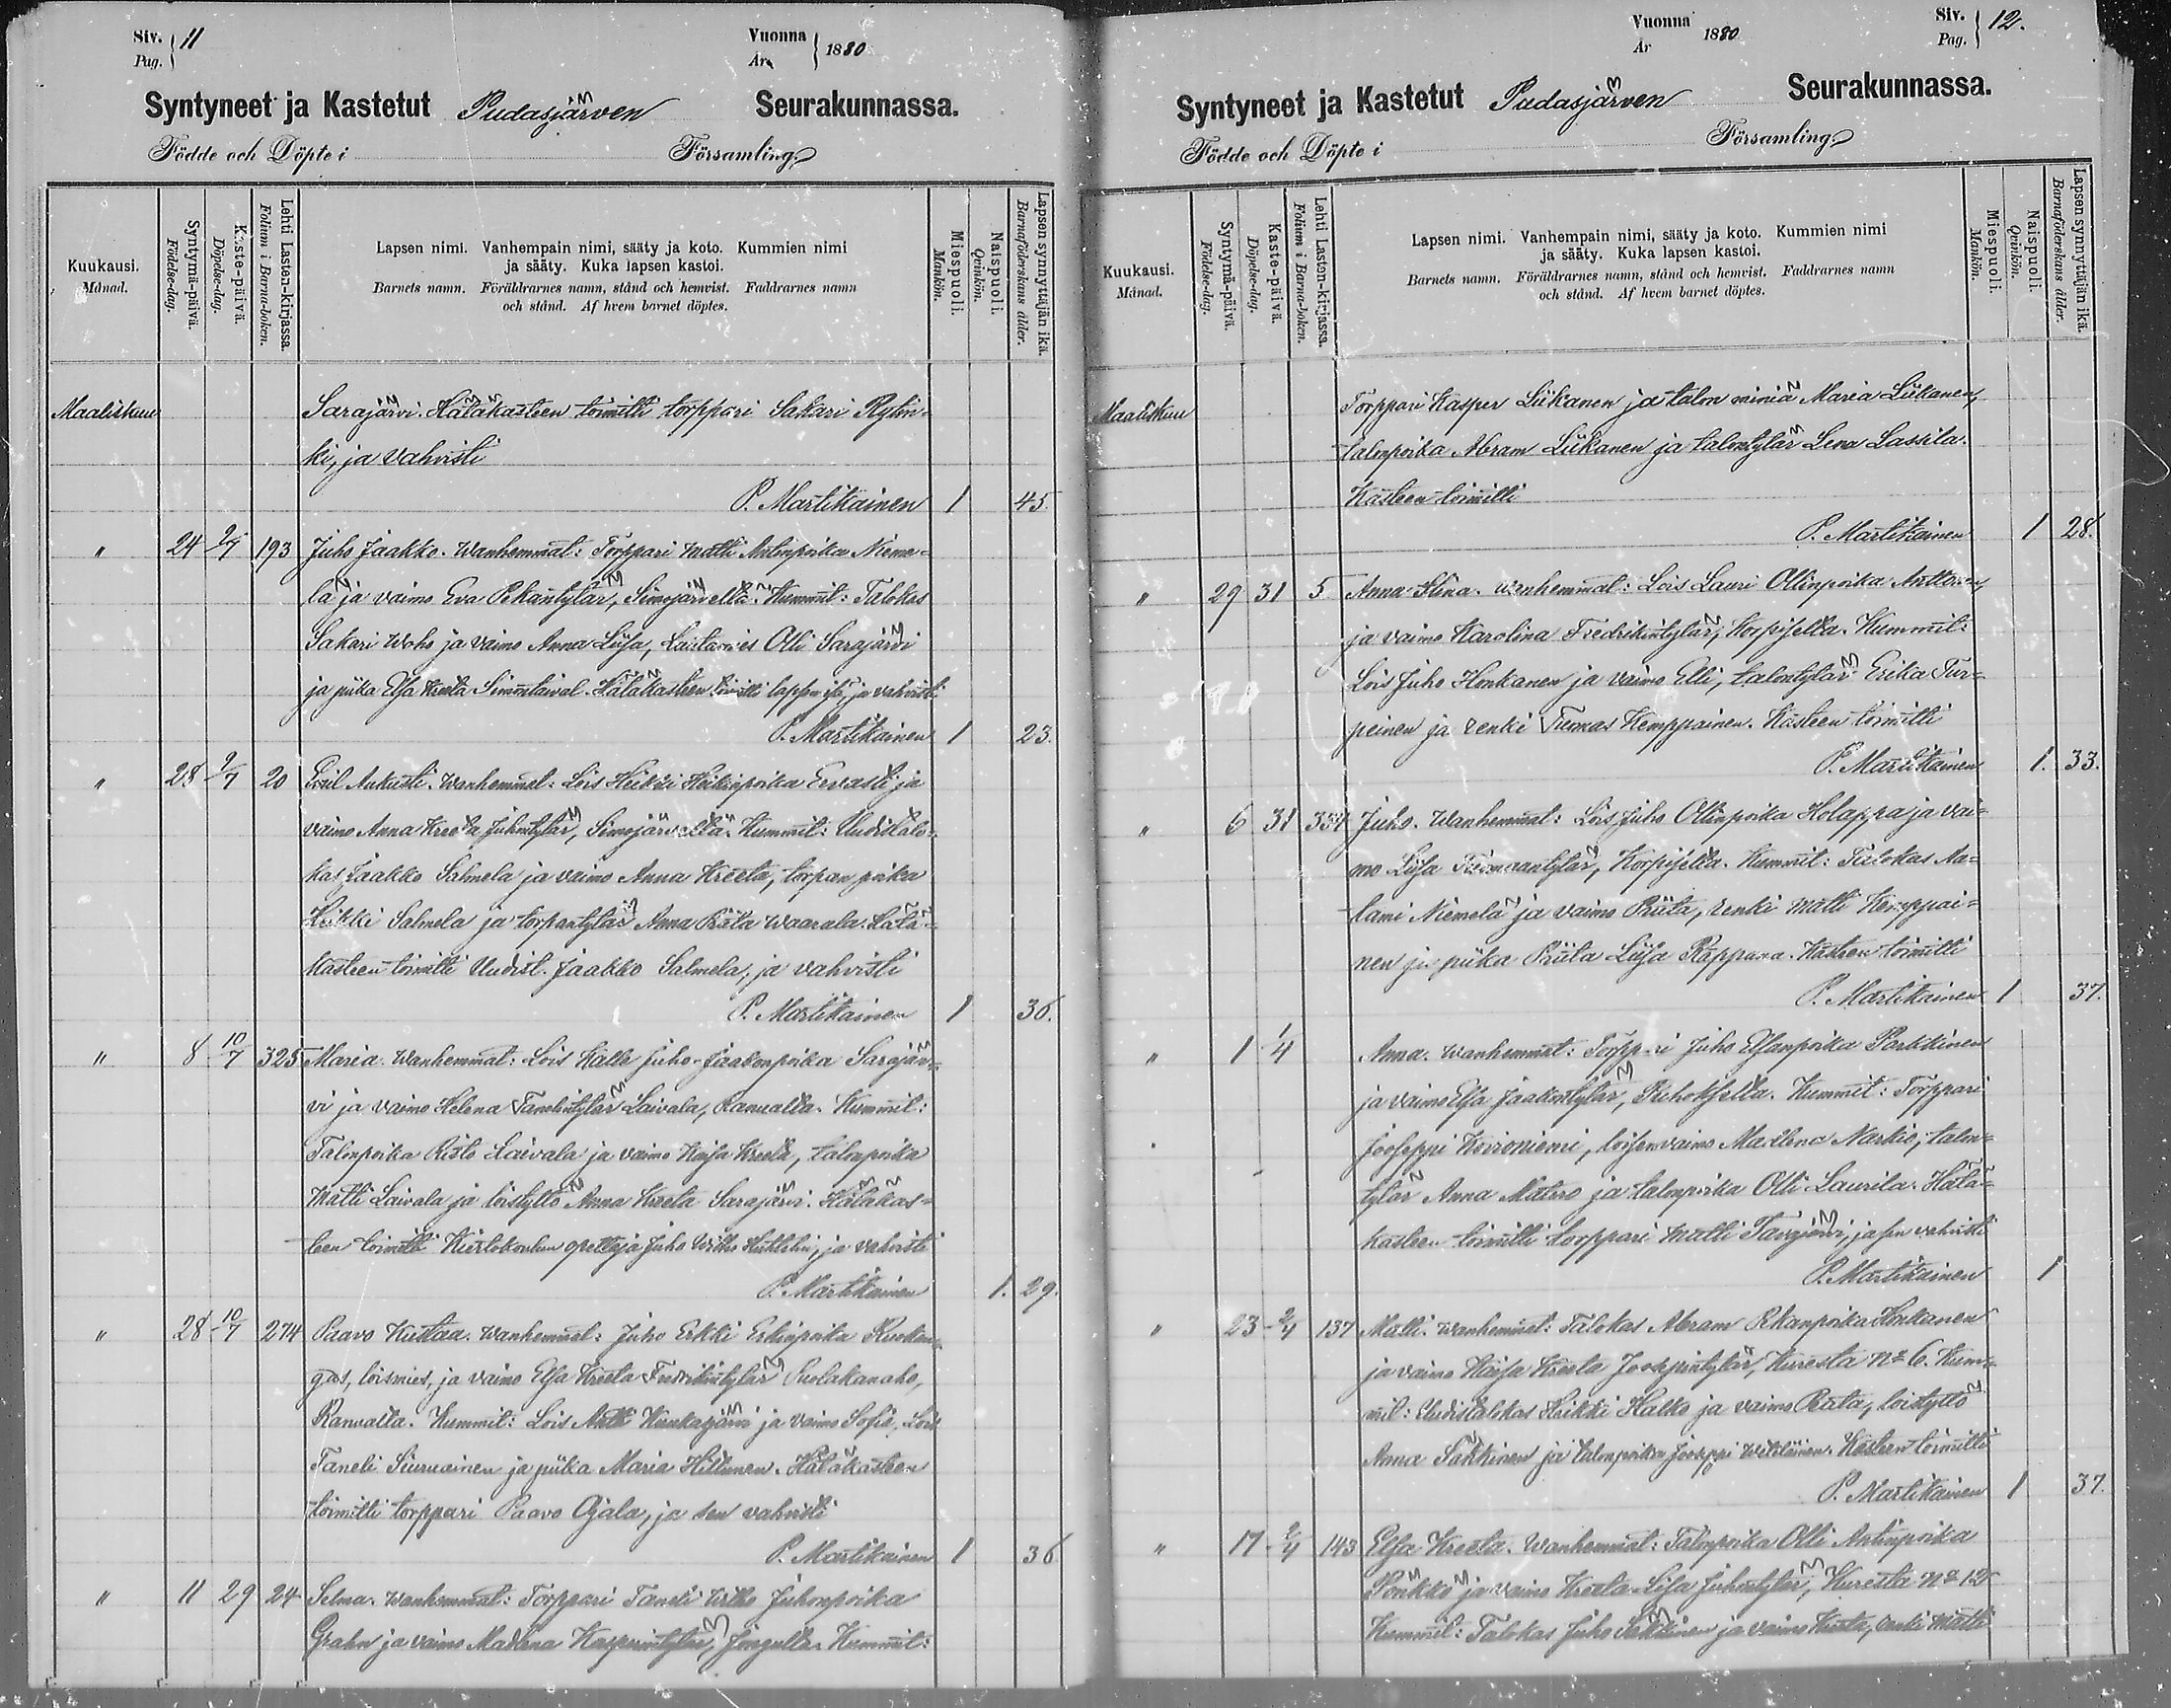 Siv. 11
Pag.
Vuonna 1880
År
Syntyneet ja Kastetut Pudasjärven Seurakunnassa.
Födde och Döpte i Församling.
Kuukausi.
Månad.
Syntymä-päivä.
Födelse-dag.
Kaste-päivä.
Döpelse-dag.
Lehti Lasten-kirjassa.
Folium i Barna-boken.
Lapsen nimi. Vanhempain nimi, sääty ja koto. Kummien nimi
ja sääty. Kuka lapsen kastoi.
Barnets namn. Föräldrarnes namn, stånd och hemvist. Faddrarnes namn
och stånd. Af hvem barnet döptes.
Miespuoli.
Mankön.
Naispuoli.
Qvinkön.
Lapsen synnyttäjän ikä.
Barnaföderskans ålder.
Maaliskuu Sarajärvi. Hätäkasteen toimitti torppari Sakari Rytin-
ki, ja vahvisti
P. Martikainen 1 45.
" 24 2/4 193 Juho Jaakko. Wanhemmat: Torppari Matti Antinpoika Nieme-
lä ja vaimo Eva Pekantytär, Simojärveltä. Kummit: Talokas
Sakari Woho ja vaimo Anna Liisa, Olli Sarajärvi
ja piika Elsa Kreeta Simontaival. Hätäkasteen toimitti lapsen isä, ja vahvisti
P. Martikainen 1 23.
" 28 2/4 20 Emil Aukusti. Wanhemmat: Lois Heikki Heikinpoika Ervasti ja
vaimo Anna Kreeta Juhontytär, Simojärveltä. Kummit: Uudistalo-
kas Jaakko Salmela ja vaimo Anna Kreeta, torpan poika
Heikki Salmela ja torpantytär Anna Priita Waarala. Hätä-
kasteen toimitti Uudist. Jaakko Salmela, ja vahvisti
P. Martikainen 1 36.
" 8 10/4 325 Maria. Wanhemmat: Lois Kalle Juho Jaakonpoika Sarajär-
vi ja vaimo Helena Tanelintytär Laivala, Ranualta. Kummit:
Talonpoika Risto Laivala ja vaimo Kaisa Kreeta, talonpoika
Matti Laivala ja loistyttö Anna Kreeta Sarajärvi. Hätäkas-
teen toimitti Kiertokoulun opettaja Juho Wilho, ja vahvisti
P. Martikainen 1. 29.
" 28 10/4 274 Paavo Kustaa. Wanhemmat: Juho Erkki Erkinpoika Kuukan-
gas, loismies, ja vaimo Elsa Kreeta Fredrikintytär Puolakanaho,
Ranualta. Kummit: Lois Antti Kuukasjärvi ja vaimo Sofia, Lois
Taneli Siuruainen ja piika Maria Hiltunen. Hätäkasteen
toimitti torppari Paavo Ojala, ja sen vahvisti
P. Martikainen 1 36
" 11 29 24 Selma. Wanhemmat: Torppari Taneli Wilho Juhonpoika
Grahn ja vaimo Madlena Kasperintytär, Jongulla. Kummit:
Vuonna 1880
År
Siv. 12.
Pag.
Syntyneet ja Kastetut Pudasjärven Seurakunnassa.
Födde och Döpte i Församling.
Kuukausi.
Månad.
Syntymä-päivä.
Födelse-dag.
Kaste-päivä.
Döpelse-dag.
Lehti Lasten-kirjassa.
Folium i Barna-boken.
Lapsen nimi. Vanhempain nimi, sääty ja koto. Kummien nimi
ja sääty. Kuka lapsen kastoi.
Barnets namn. Föräldrarnes namn, stånd och hemvist. Faddrarnes namn
och stånd. Af hvem barnet döptes.
Miespuoli.
Mankön.
Naispuoli.
Qvinkön.
Lapsen synnyttäjän ikä.
Barnaföderskans ålder.
Maaliskuu Torppari Kasper Liikanen ja talon miniä Maria Liikanen,
talonpoika Abram Liikanen ja talontytär Lena Lassila.
Kasteen toimitti
P. Martikainen 1 28.
" 29 31 5 Anna Stina. Wanhemmat: Lois Lauri Ollinpoika Anttonen
ja vaimo Karolina Fredrikintytär, Korpiselta. Kummit:
Lois Juho Honkanen ja vaimo Elli, talontytär Erika Tur-
peinen ja renki Tuomas Kemppainen. Kasteen toimitti
P. Martikainen 1. 33.
" 6 31 354 Juho. Wanhemmat: Lois Juho Ollinpoika Holappa ja vai-
mo Liisa Tuomaantytär, Korpiselta. Kummit: Talokas Aa-
tami Niemelä ja vaimo Priita, renki Matti Kemppai-
nen ja piika Priita Liisa Räppänä. Kasteen toimitti
P. Martikainen 1 37.
" 1 1/4 Anna. Wanhemmat: Torppari Juho Esanpoika Parkkinen
ja vaimo Elsa Jaakontytär, Kummit: Torppari
Jooseppi Koivoniemi, loisenvaimo Madlena Narkio, talon-
tytär Anna Matero ja talonpoika Olli Laurila. Hätä-
kasteen toimitti torppari Matti Tavajärvi, ja sen vahvisti
P. Martikainen 1
" 23 2/4 137 Matti. Wanhemmat: Talokas Abram Pekanpoika Honkanen
ja vaimo Kaisa Kreeta Joosepintytär, Kuresta No 6. Kum-
mit: Uudistalokas Heikki Halko ja vaimo Priita, loistyttö
Anna Särkkinen ja talonpoika Jooseppi Kasteen toimitti
P. Martikainen 1 37.
" 17 2/4 143 Elsa Kreeta. Wanhemmat: Talonpoika Olli Antinpoika
Pönkkö ja vaimo Kreeta Liisa Juhontytär, Kuresta No 12
Kummit: Talokas Juho Särkkinen ja vaimo Kreeta, renki Matti